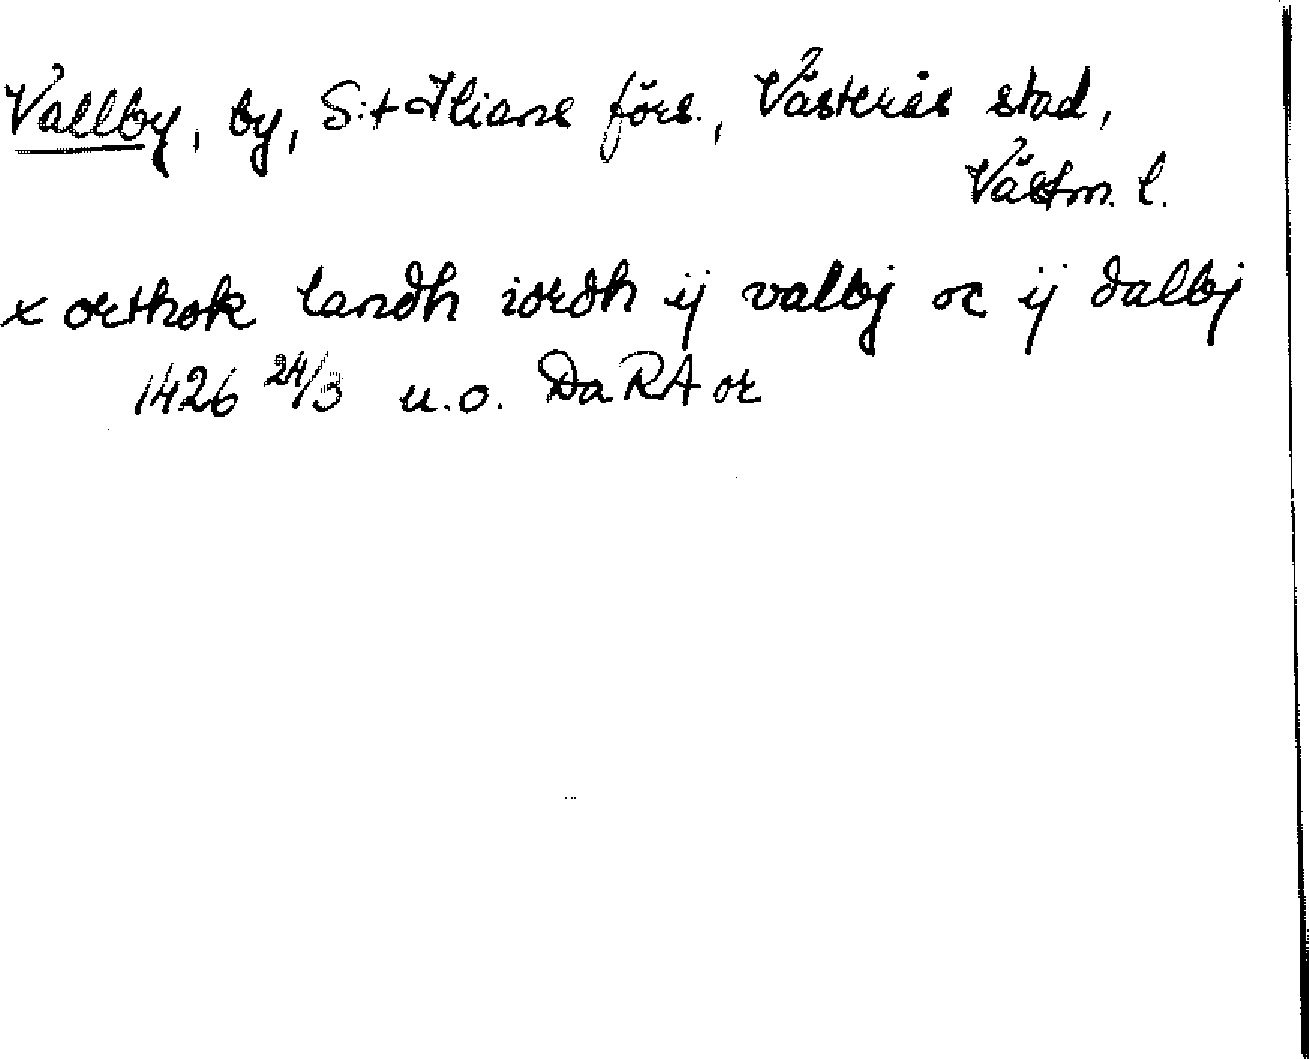 Vallby, by, S:t Ilians förs., Västerås stad,
Västm. l.
x orthok landh iordh ij valbj oc ij dalbj
1426 24/3 u.o. DaRA or